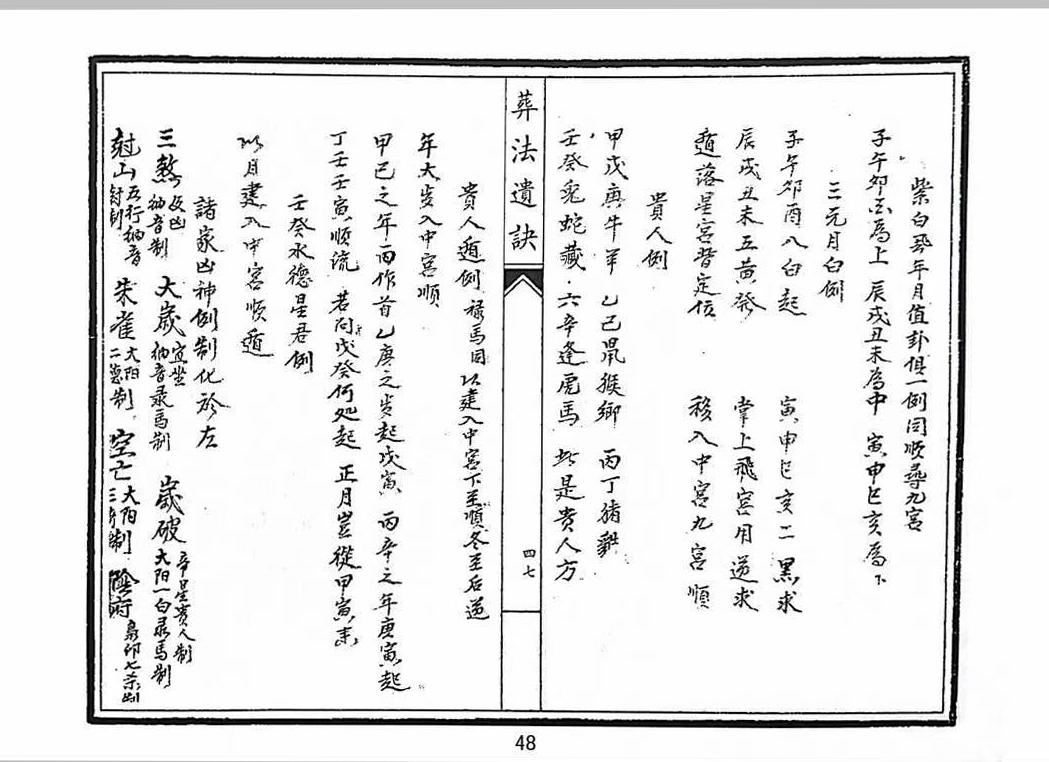 紫白飛年月值卦俱一例同順尋九宮
子午卯酉為上 辰戌丑未為中 寅申巳亥為下
三元月白例
子午卯酉八白起 寅申巳亥二黑求
辰戌丑未五黃發 掌上飛宮用逆求
遁落星宮皆定位 移入中宮九宮順
貴人例
甲戊庚牛羊 乙己鼠猴鄉 丙丁猪雞
壬癸兔蛇藏 六辛逢虎馬 此是貴人方
葬法遺訣
四七
貴人遁例 祿馬同 以建入中宮下至順冬至后逆
年大岁入中宮順
甲己之年丙作首 乙庚之岁起戊寅 丙辛之年庚寅起
丁壬壬寅順流 若问戊癸何处起 正月豈從甲寅末
壬癸水德星君例
以月建入中宮順遁
諸家凶神例制化於左
三煞 納音制 大歲 宜坐 納音录馬制 歲破 帝星貴人制 大阳一白录馬制
尅山 五行納音 制 朱雀 大阳 二德制 空亡 大阳 制 陰府
48